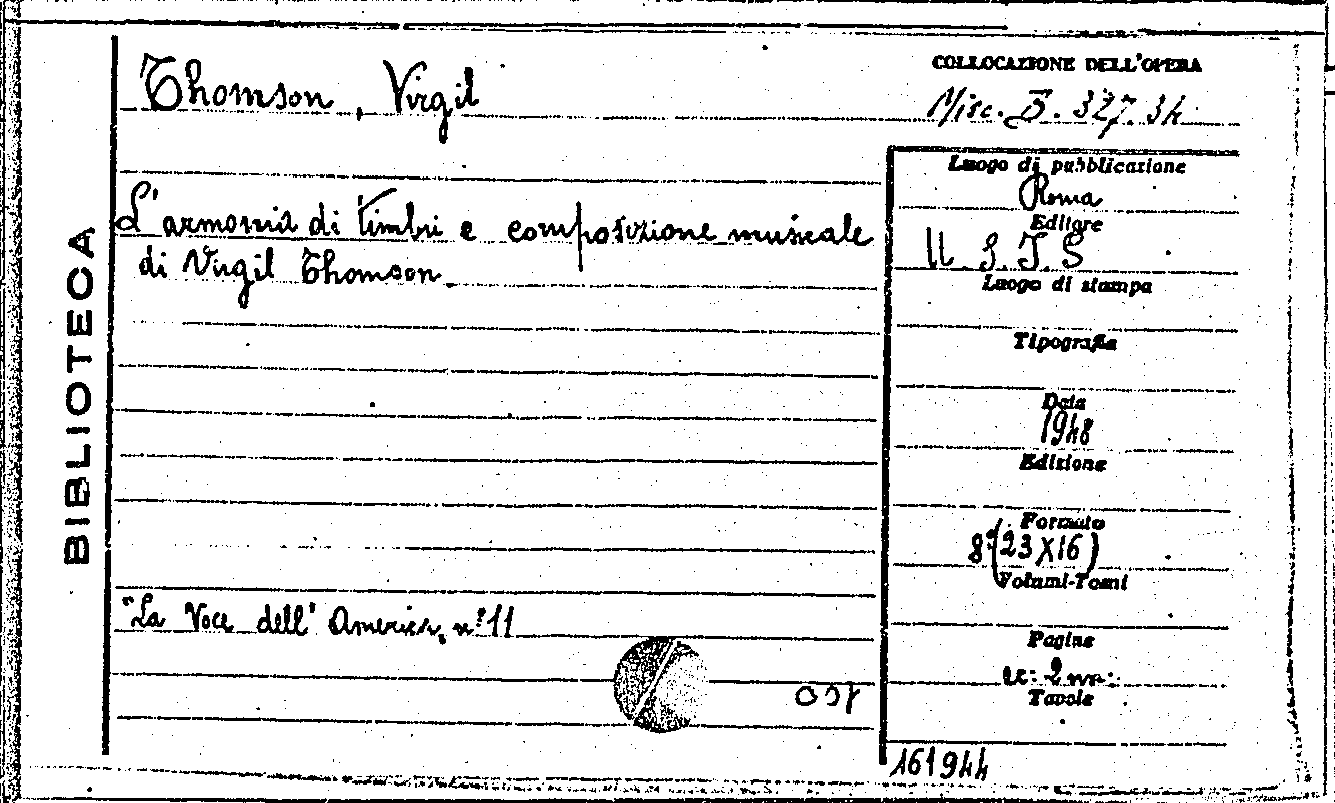 BIBLIOTECA
Thomson, Virgil
COLLOCAZIONE DELL'OPERA
Misc. B. 327.34
L'armonia di timbri e composizione musicale
di Virgil Thomson
Luogo di pubblicazione
Roma
Editore
U.S.I.S
Luogo di stampa
Tipografia
Data
1948
Edizione
Formato
8°(23X16)
Volumi-Tomi
"La Voce dell'America" n° 11
Pagine
cc. 2 nn.
Tavole
161944